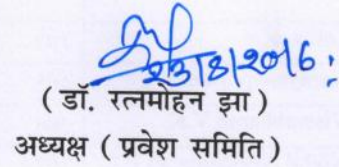 23/8/2016
( डॉ. रत्नमोहन झा )
अध्यक्ष ( प्रवेश समिति )